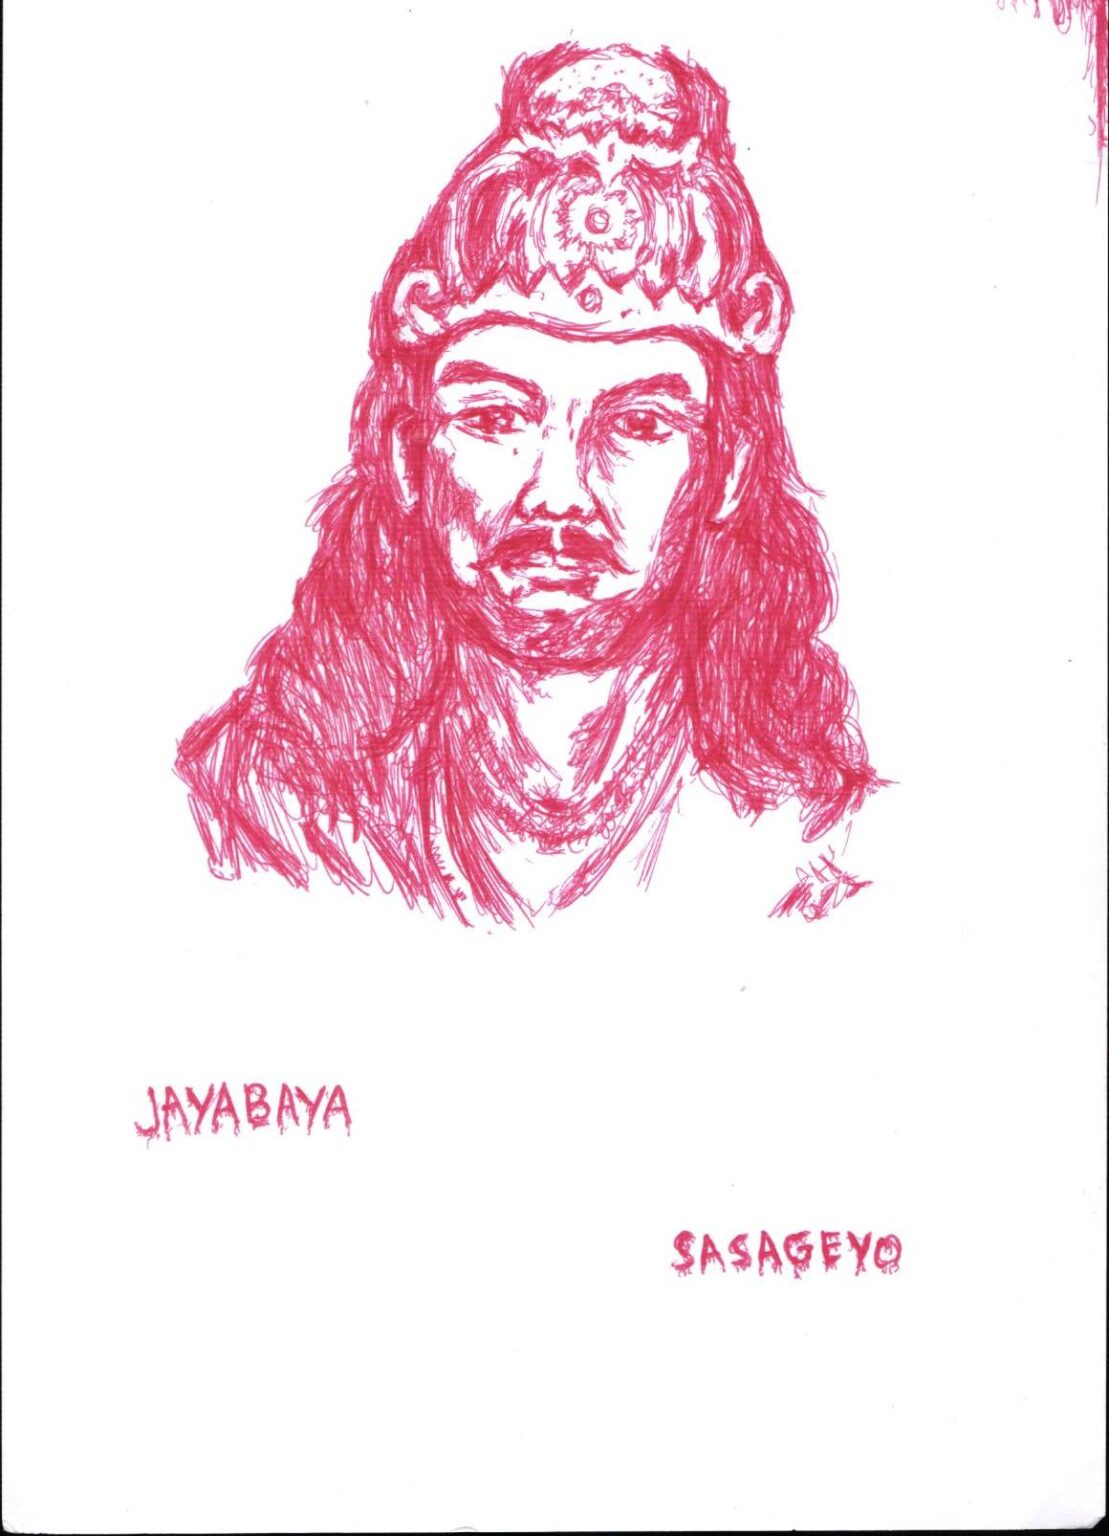 JAYABAYA
SASAGEYO